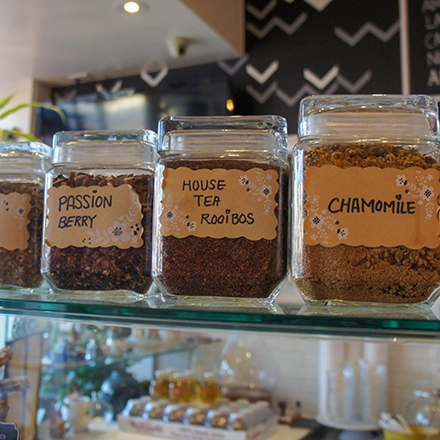 PASSION
BERRY
HOUSE
TEA
ROOIBOS
CHAMOMILE